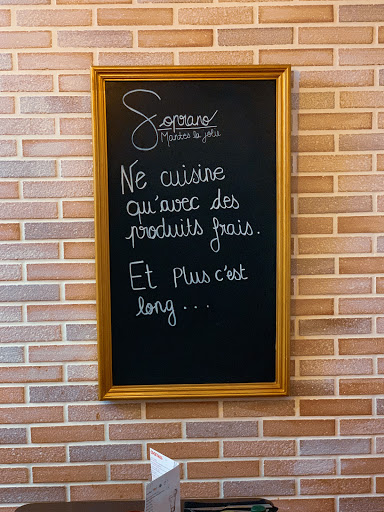 Soprano
Mantes la jolie
Ne cuisine
qu'avec des
produits frais.
Et Plus c'est
long...